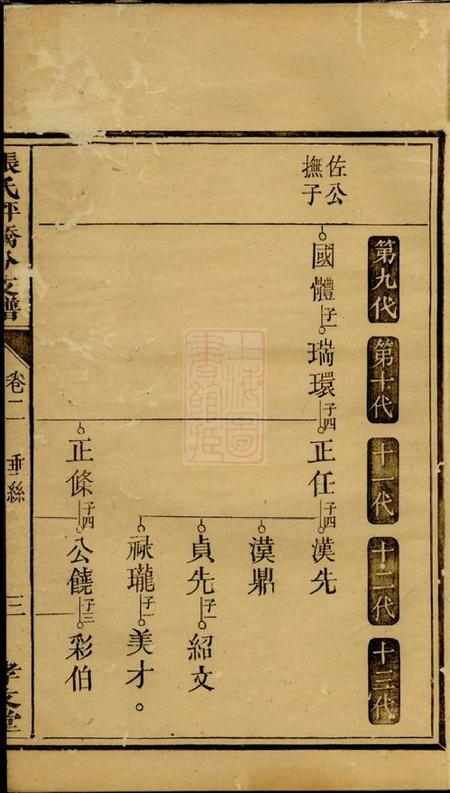 第九代
第十代
十一代
十二代
十三代
佐公
撫子
國體 子一 瑞環 子四 正任 子四 漢先
漠鼎
貞先 子一 紹文
祿瓏 子一 美才。
正條 子四 公饒 子三 彩伯
張氏坪橋分支譜
卷二
垂絲
三
孝友堂
上海圖書館藏